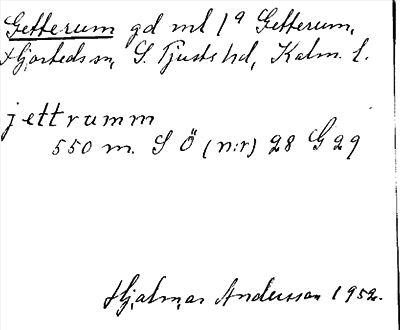 Getterum gd ml 1ª Getterum,
Hjorteds sn, S. Tjusts hd, Kalm. l.
jettrumm
550 m. S Ö (n:r) 28 G 29
Hjalmar Andersson 1952.